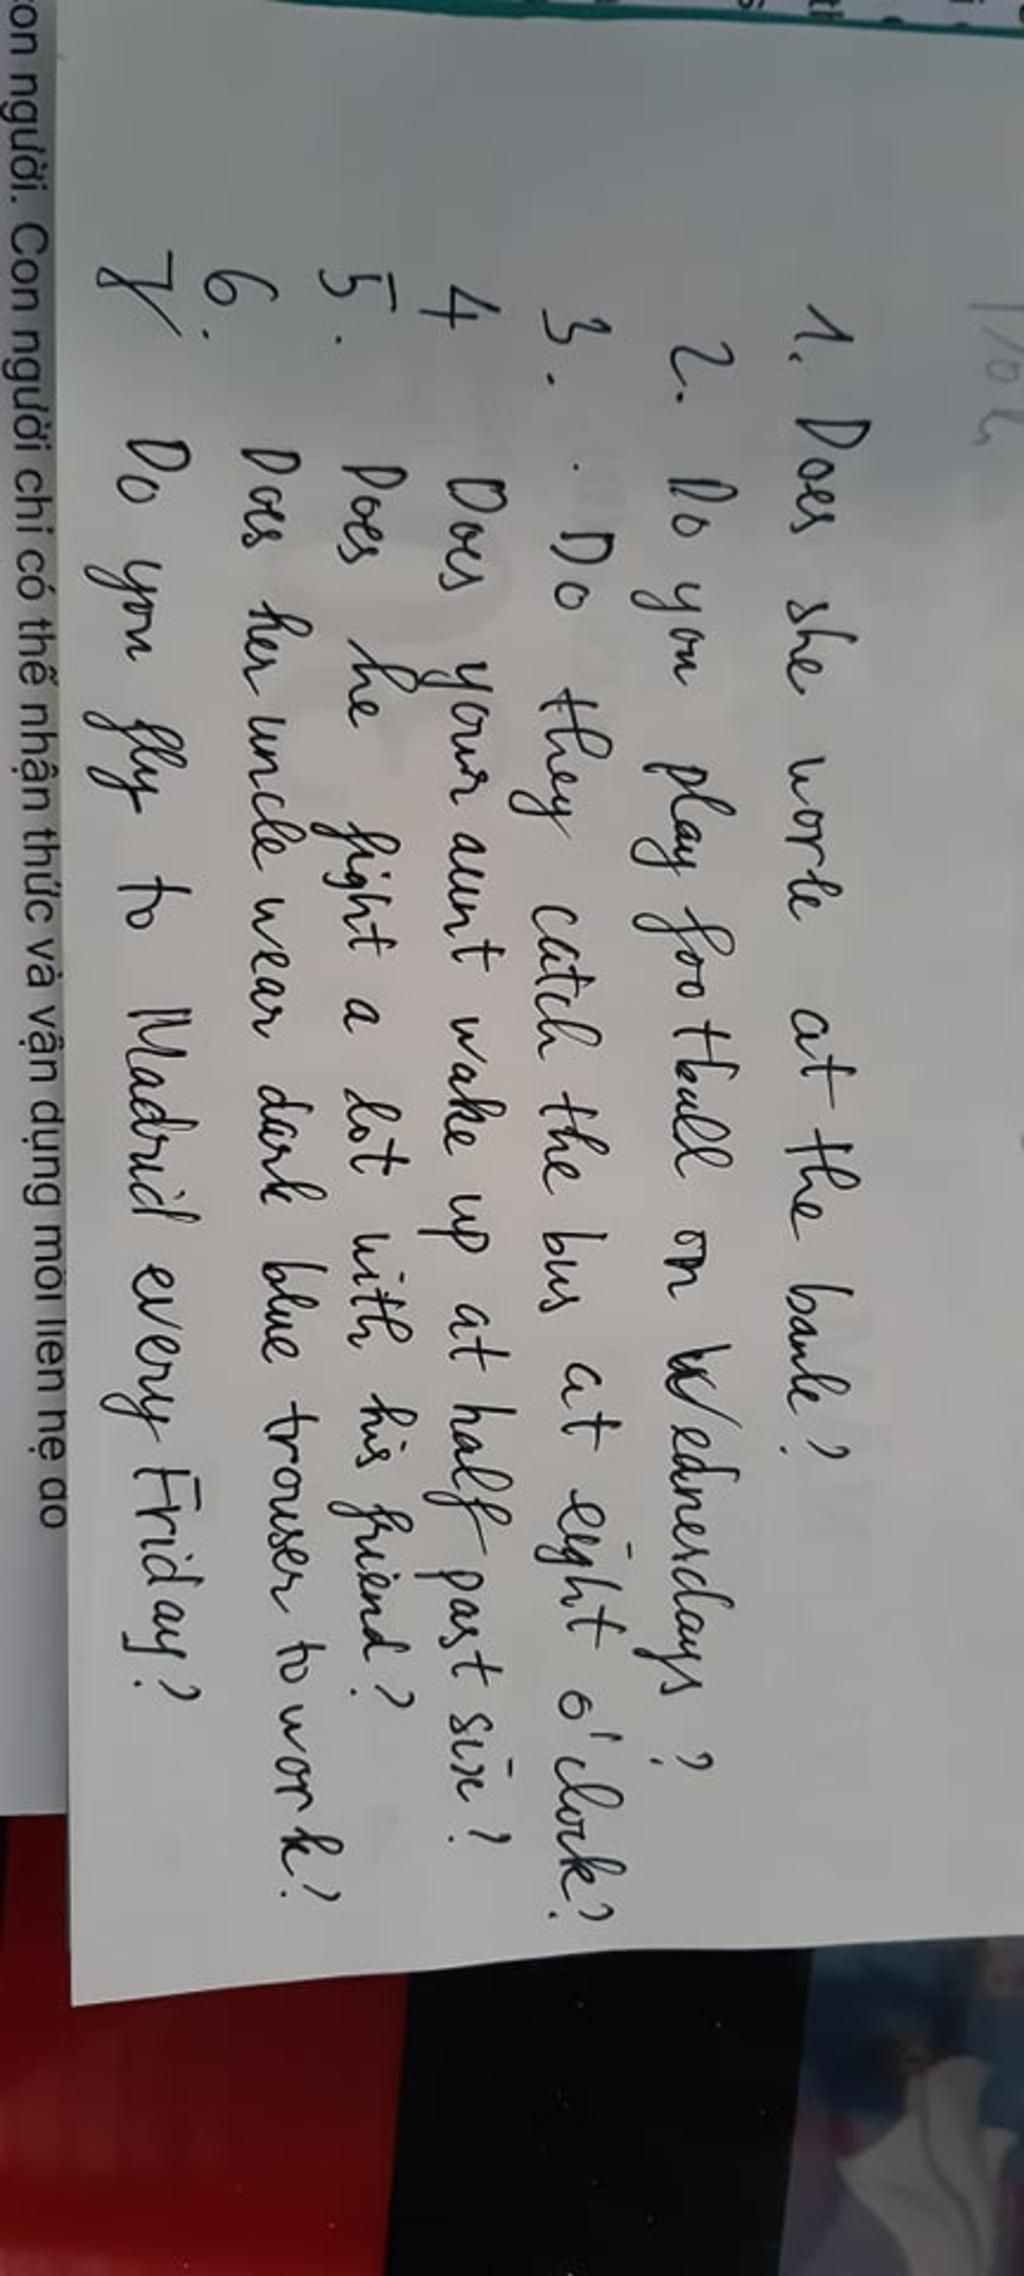 1. Does she work at the bank?
2. Do you play football on Wednesdays?
3. . Do they catch the bus at eight o'clock?
4 Does your aunt wake up at half past six?
5. Does he fight a lot with his friend?
6. Does her uncle wear dark blue trouser to work?
7. Do you fly to Madrid every Friday?
con người. Con người chỉ có thể nhận thức và vận dụng mối liên hệ đó